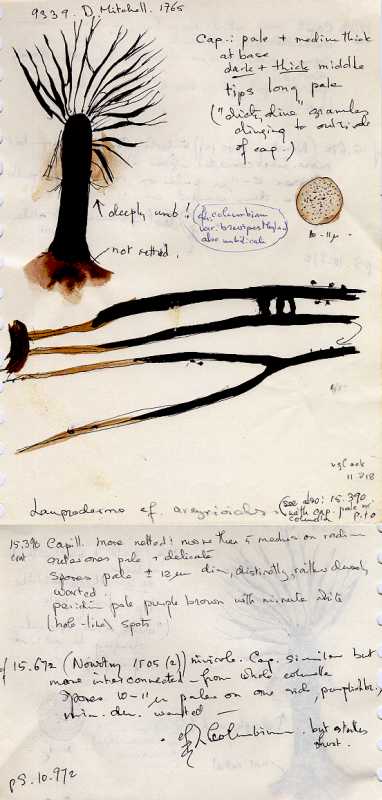 9339. D. Mitchell. 1765
Cap.: pale + medium thick
at base
dark + thick middle
tips long pale
("dicty dine" granules
clinging to outside
of cap.)
↑ deeply umb!
cf. columbinum
var. brevipes
also umbilicate
10-11µ
not netted.
11.78
Lamproderma cf. arcyrioides.
(see also: 15.390
with cap. pale
columella p.t.o
15.390 Capill. more netted: more than 5 meshes on radius
outer ones pale + delicate
Spores pale ± 12µm diam, distinctly, rather densely
warted
peridium pale purple brown with minute white
(hole-like) spots
cf 15.672 (Nowotny 1505 (2)) nivicole. Cap. similar but
more interconnected - from whole columella
Spores 10-11µ paler on one side, purplish
min. den. warted —
cf. L. Columbinum. but stalks
short.
ps. 10.972